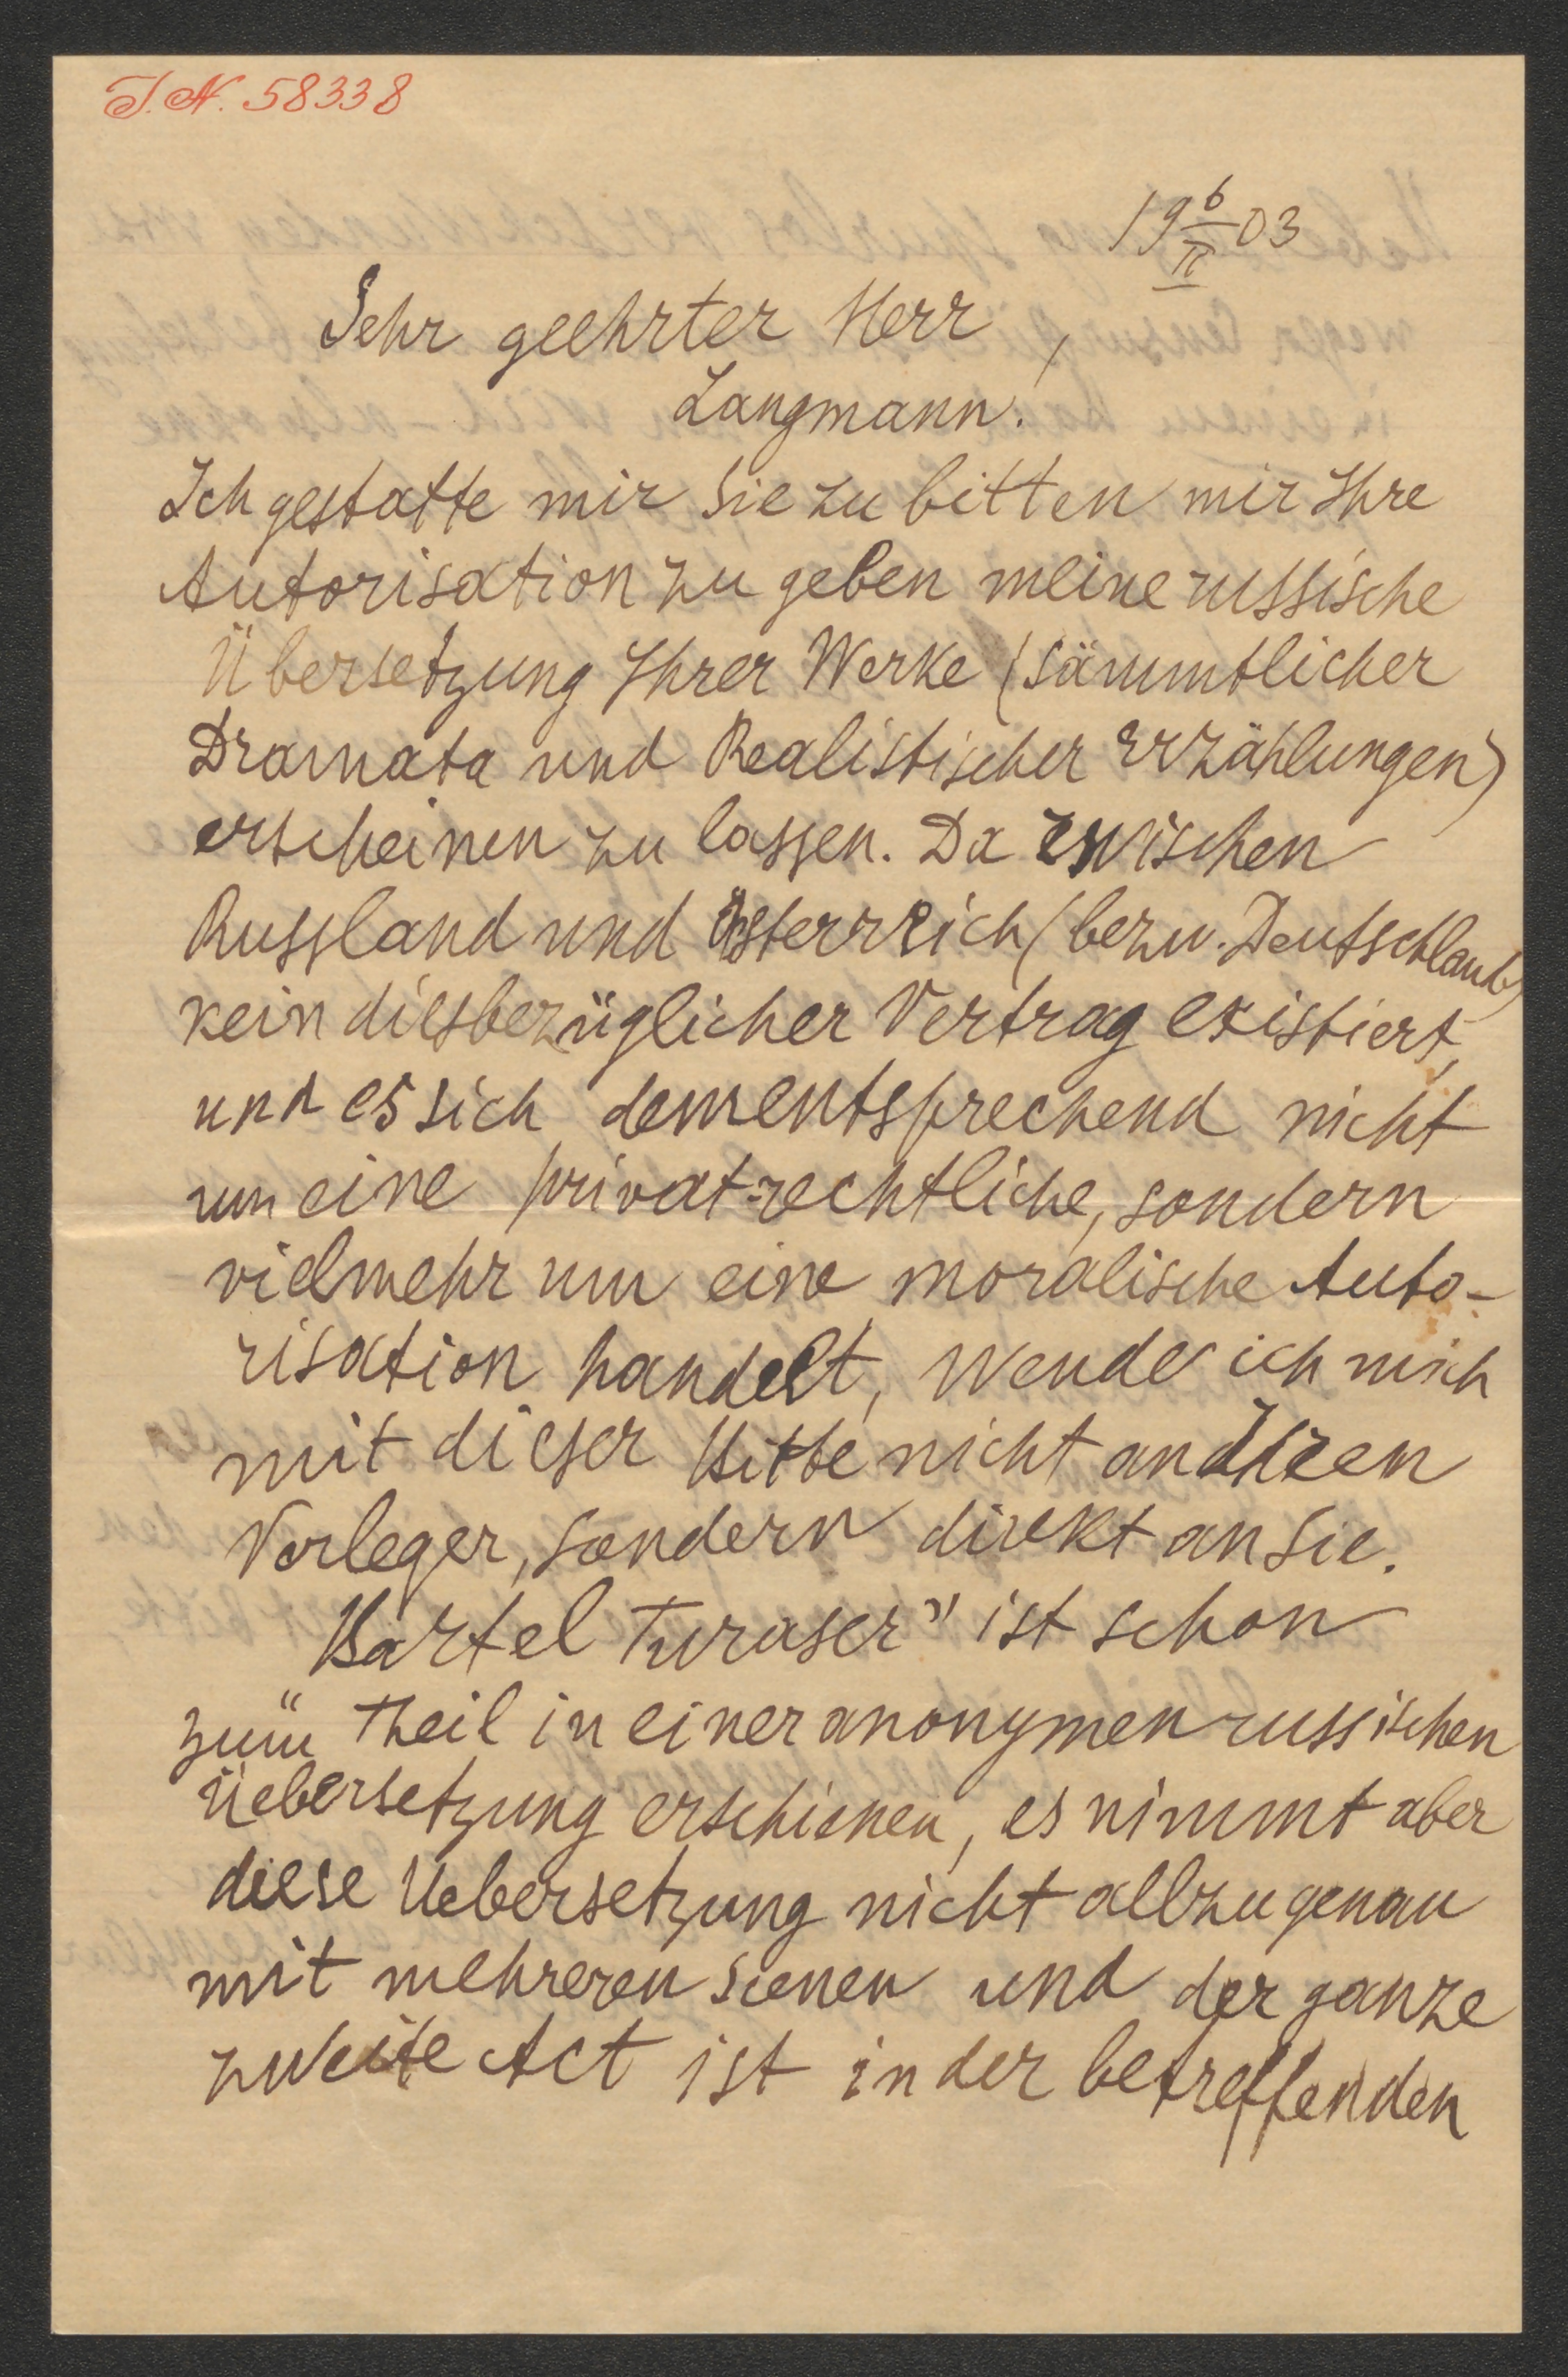 I.N. 58338
19 6/II 03
Sehr geehrter Herr,
Langmann!
Ich gestatte mir Sie zu bitten mir Ihre
Autorisation zu geben meine russische
Übersetzung Ihrer Werke (sämmtlicher
Dramata und Realistischer Erzählungen)
erscheinen zu lassen. Da zwischen
Russland und Österreich (bezw. Deutschland)
kein diesbezüglicher Vertrag existiert,
und es sich dementsprechend nicht
um eine privat-rechtliche, sondern
vielmehr um eine moralische Auto-
risation handelt, wende ich mich
mit dieser Bitte nicht an Ihren
Verleger, sondern direkt an Sie.
Bartel Turaser" ist schon
zum Theil in einer anonymen russischen
Uebersetzung erschienen, es nimmt aber
diese Uebersetzung nicht allzu genau
mit mehreren Scenen und der ganze
zweite Act ist in der betreffenden